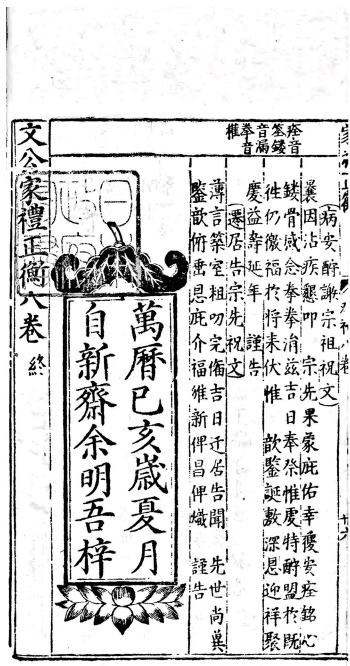 痊音
筌鏤
音漏
拳音
權
病安酧謝宗祖祝文
曩因沾疾懇叩　宗先果蒙庇佑幸𫉬安痊銘心
鏤骨感念拳拳涓兹吉日奉祭惟虔特酧盟於既
徃仍徼福於將来伏惟　歆鑒誕敷深恩迎祥聚
慶益壽延年　謹告
遷居告宗先祝文
薄言築室粗勿完俻吉日迁居告聞　先世尚兾
鑒歆俯垂恩庇介福維新俾昌俾熾　謹告
萬曆已亥歳夏月
自新齋余明吾梓
文公家禮正衡八卷終